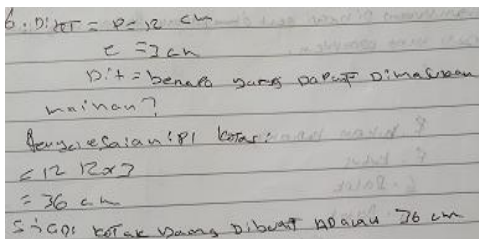 6. Diket = P = 12 cm
l = 3 cm
Dit = berapa yang Dapat Dimasukan
mainan?
Penyelesaian: P1 kotak:
= 12 12 x 3
= 36 cm
Jadi kotak yang Dibuat Adalah 36 cm